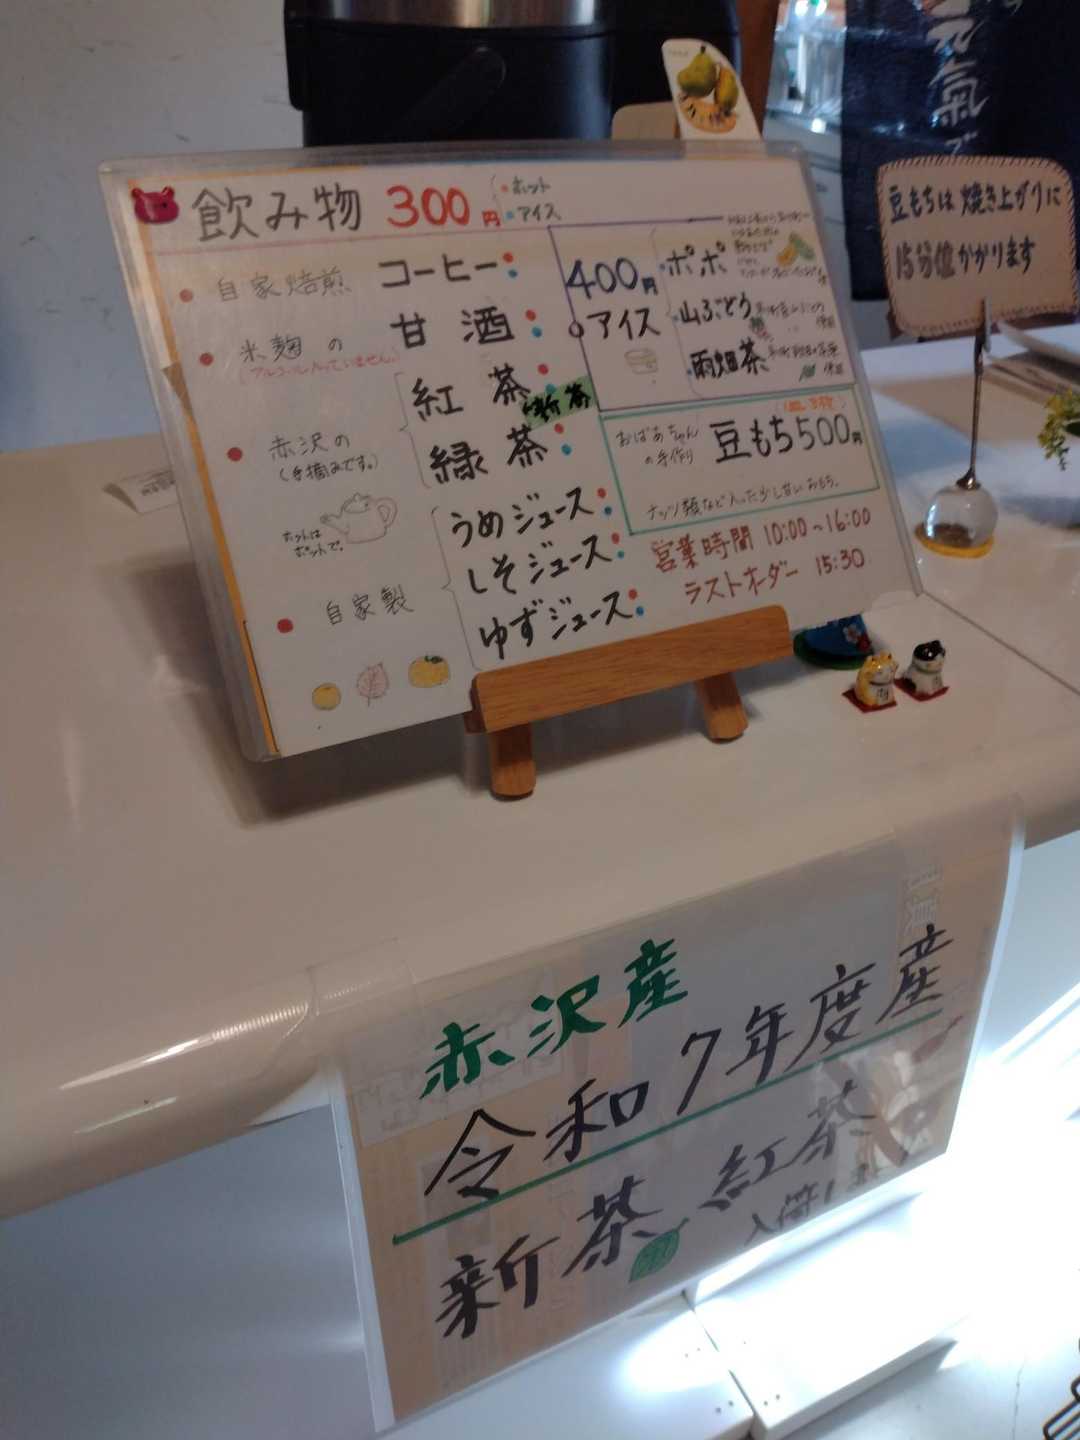 飲み物 300円
・ホット
・アイス
自家焙煎 コーヒー
米麹の 甘酒
(アルコール入っていません。)
赤沢の
(手摘みです。)
紅茶
緑茶
新茶
ホットは
ポットで。
自家製
うめジュース
しそジュース
ゆずジュース
400円
アイス
・ポポ
・山ぶどう
・雨畑茶
おばあちゃん
の手作り
豆もち500円
ナッツ類など入った少し甘いおもち。
営業時間 10:00~16:00
ラストオーダー 15:30
豆もちは焼き上がりに
15分位かかります
赤沢産
令和7年度産
新茶 紅茶